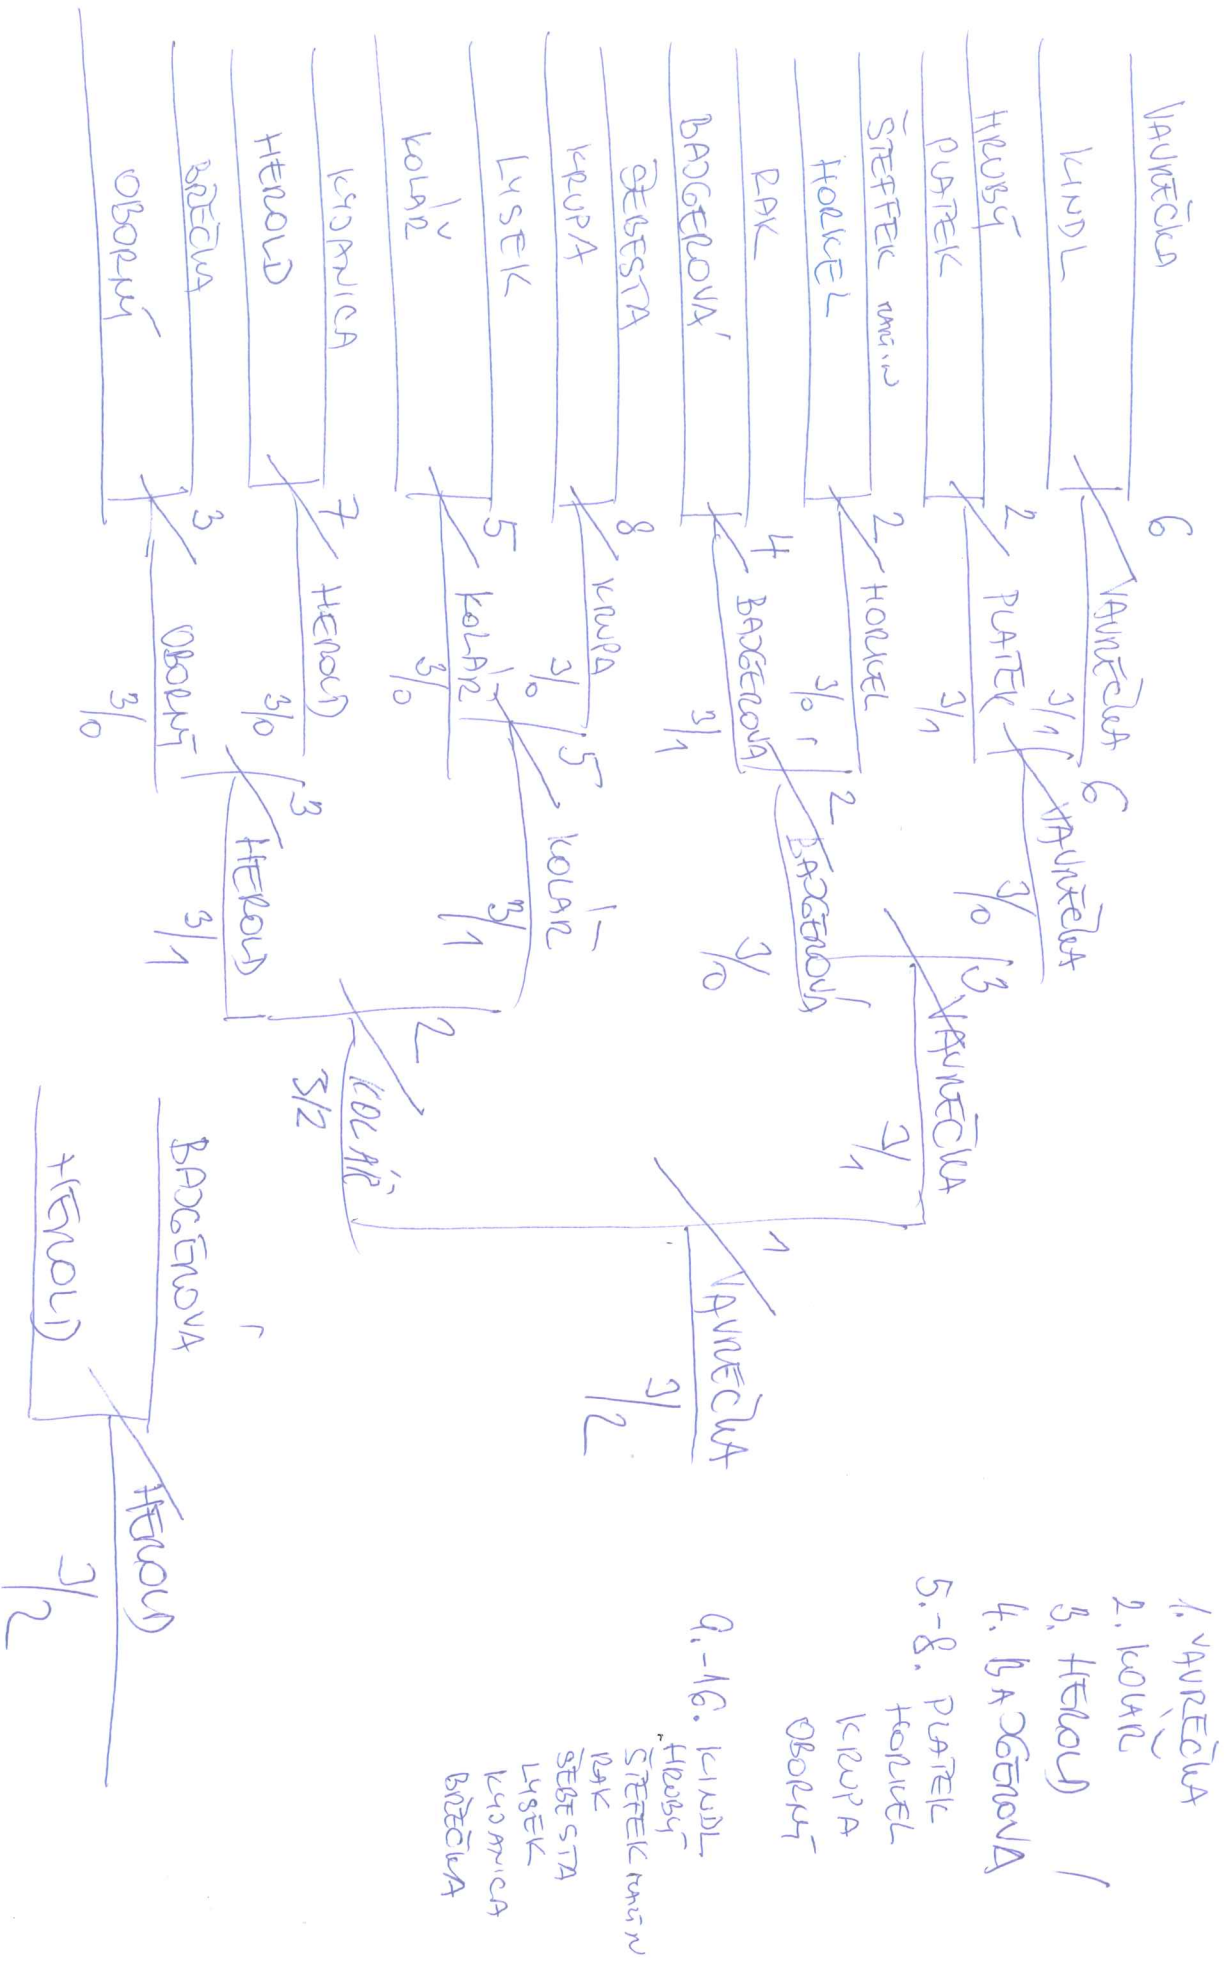 VAVREČKA
KINDL
HRUBÝ
PLATEK
ŠTEFFEK MARTIN
HORKEL
RAK
BAJGEROVÁ
ŠEBESTA
KRUPA
LYSEK
KOLÁŘ
KYJANICA
HEROLD
BŘEČKA
OBORNÝ
6
VAVREČKA
3/1
2
PLATEK
3/1
2
HORKEL
3/0
4
BAJGEROVÁ
3/1
8
KRUPA
3/0
5
KOLÁŘ
3/0
7
HEROLD
3/0
3
OBORNÝ
3/0
6
VAVREČKA
3/0
2
BAJGEROVÁ
3/0
5
KOLÁŘ
3/1
3
HEROLD
3/1
3
VAVREČKA
3/1
2
KOLÁŘ
3/2
1
VAVREČKA
3/2
BAJGEROVÁ
HEROLD
HEROLD
3/2
1. VAVREČKA
2. KOLÁŘ
3. HEROLD
4. BAJGEROVÁ
5.-8. PLATEK
HORKEL
KRUPA
OBORNÝ
9.-16. KINDL
HRUBÝ
ŠTEFEK MARTIN
RAK
ŠEBESTA
LYSEK
KYJANICA
BŘEČKA